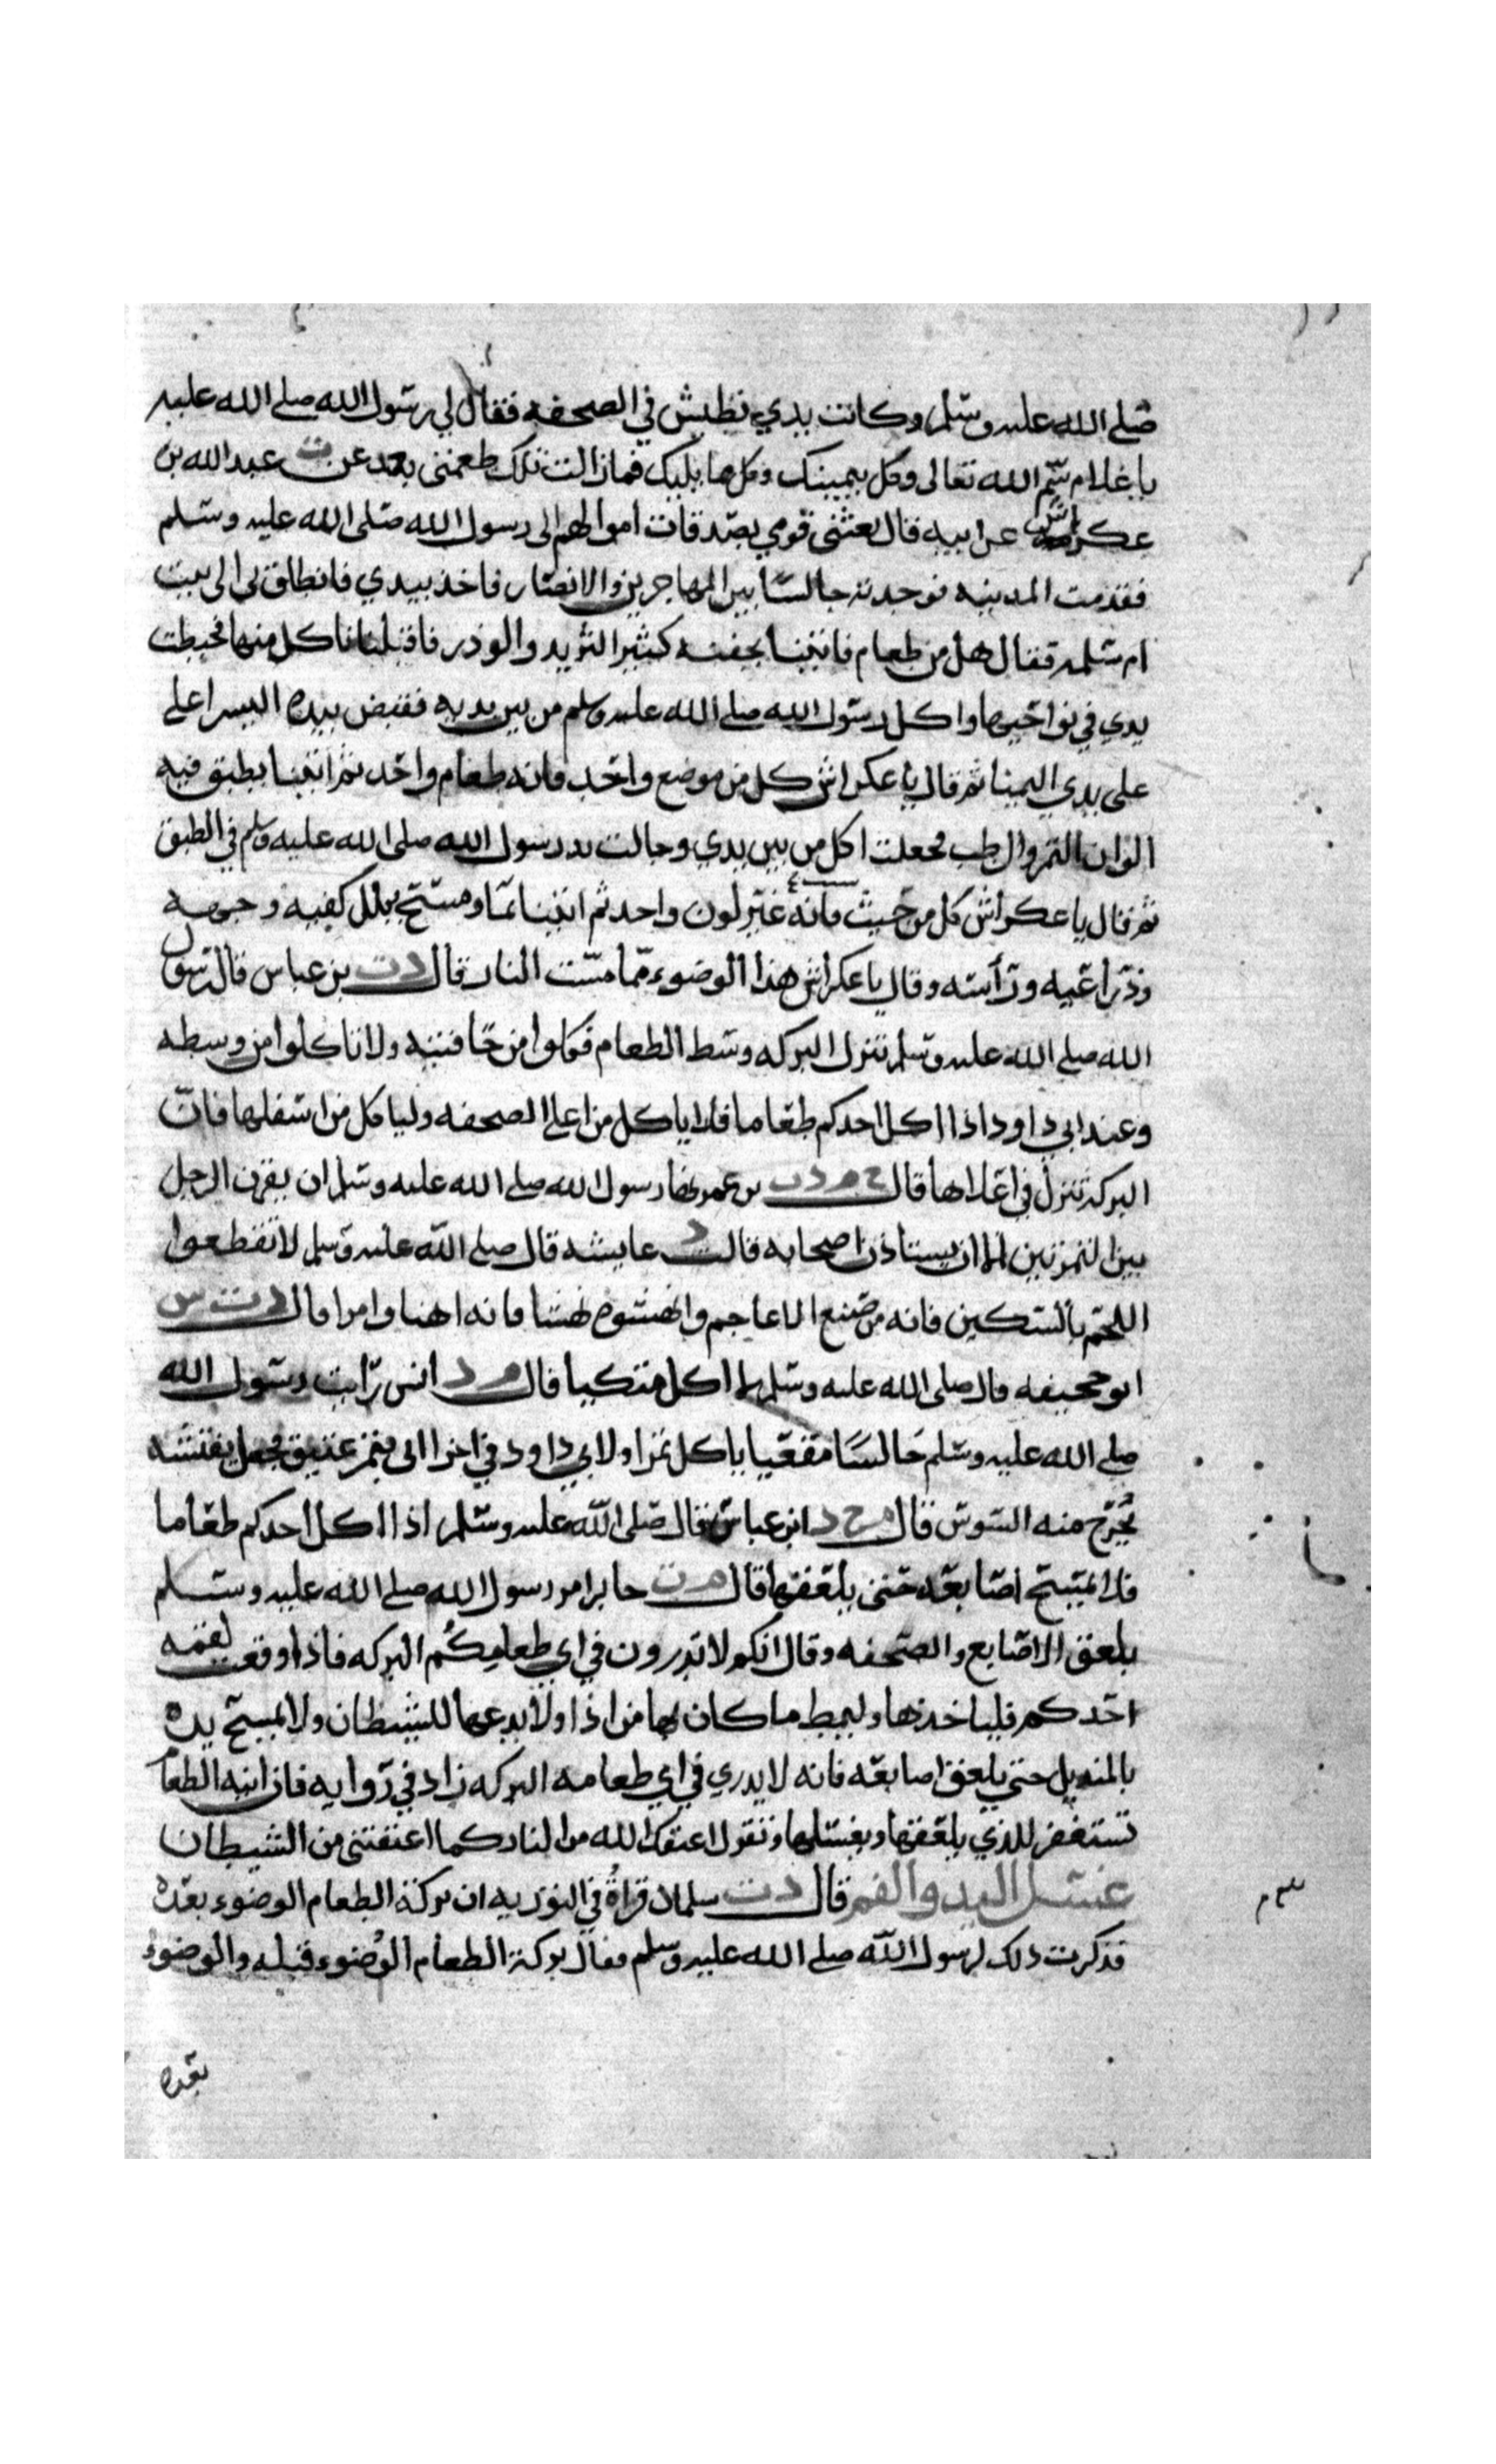 صلى الله عليه وسلم وكانت يدي تطيش في الصحفه فقال لي رسول الله صلى الله عليه
يا غلام سم الله تعالى وكل بيمينك وكل مما يليك فما زالت تلك طعمتي بعد عن ت عبد الله بن
عكراش عن ابيه قال بعثني قومي بصدقات اموالهم الى رسول الله صلى الله عليه وسلم
فقدمت المدينه فوجدته جالسا بين المهاجرين والانصار فاخذ بيدي فانطلق بي الى بيت
ام سلمه فقال هل من طعام فاتينا بجفنه كثير الثريد والوذر فاقبلنا ناكل منها فخبطت
يدي في نواحيها واكل رسول الله صلى الله عليه وسلم من بين يديه فقبض بيده اليسرا على
على يدي اليمنا ثم قال يا عكراش كل من موضع واحد فانه طعام واحد ثم اتينا بطبق فيه
الوان التمر والرطب فجعلت اكل من بين يدي وجالت يد رسول الله صلى الله عليه وسلم في الطبق
ثم قال يا عكراش كل من حيث فانه غير لون واحد ثم اتينا بما ومسح ببلل كفيه وجهه
وذراعيه ورأسه وقال يا عكراش هذا الوضوء مما مست النار قال د ت بن عباس قال رسول
الله صلى الله عليه وسلم تنزل البركه وسط الطعام فكلوا من حافتيه ولا تاكلوا من وسطه
وعند ابي داود اذا اكل احدكم طعاما فلا ياكل من اعلا الصحفه وليا كل من اسفلها فان
البركة تنزل في اعلاها قال خ م د ت بن عمر نها رسول الله صلى الله عليه وسلم ان يقرن الرجل
بين التمرتين الا ان يستاذن اصحابه قالت د عايشه قال صلى الله عليه وسلم لا تقطعوا
اللحم بالسكين فانه من صنع الاعاجم وانهسوه نهسا فانه اهنا وامرا قال د ت س
ابو جحيفه قال صلى الله عليه وسلم لا اكل متكيا قال م د انس رايت رسول الله
صلى الله عليه وسلم جالسا مقعيا ياكل تمرا ولابي داود في اخرا اتى بتمر عتيق فجعل يفتشه
يخرج منه السوس قال م خ د ابن عباس قال صلى الله عليه وسلم اذا اكل احدكم طعاما
فلا يمسح اصابعه حتى يلعقها قال م ت جابر امر رسول الله صلى الله عليه وسلم
بلعق الاصابع والصحفه وقال انكم لا تدرون في اي طعامكم البركه فاذا وقعت لقمه
احدكم فلياخذها وليمط ما كان بها من اذا ولا يدعها للشيطان ولا يمسح يده
بالمنديل حتى يلعق اصابعه فانه لا يدري في اي طعامه البركه زاد في روايه فان انيه الطعام
تستغفر للذي يلعقها ويغسلها وتقول اعتقك الله من النار كما اعتقتني من الشيطان
غسل اليد والفم قال د ت سلمان قراة في التوريه ان بركة الطعام الوضوء بعده
فذكرت ذلك لرسول الله صلى الله عليه وسلم فقال بركة الطعام الوضوء قبله والوضوء
بعده